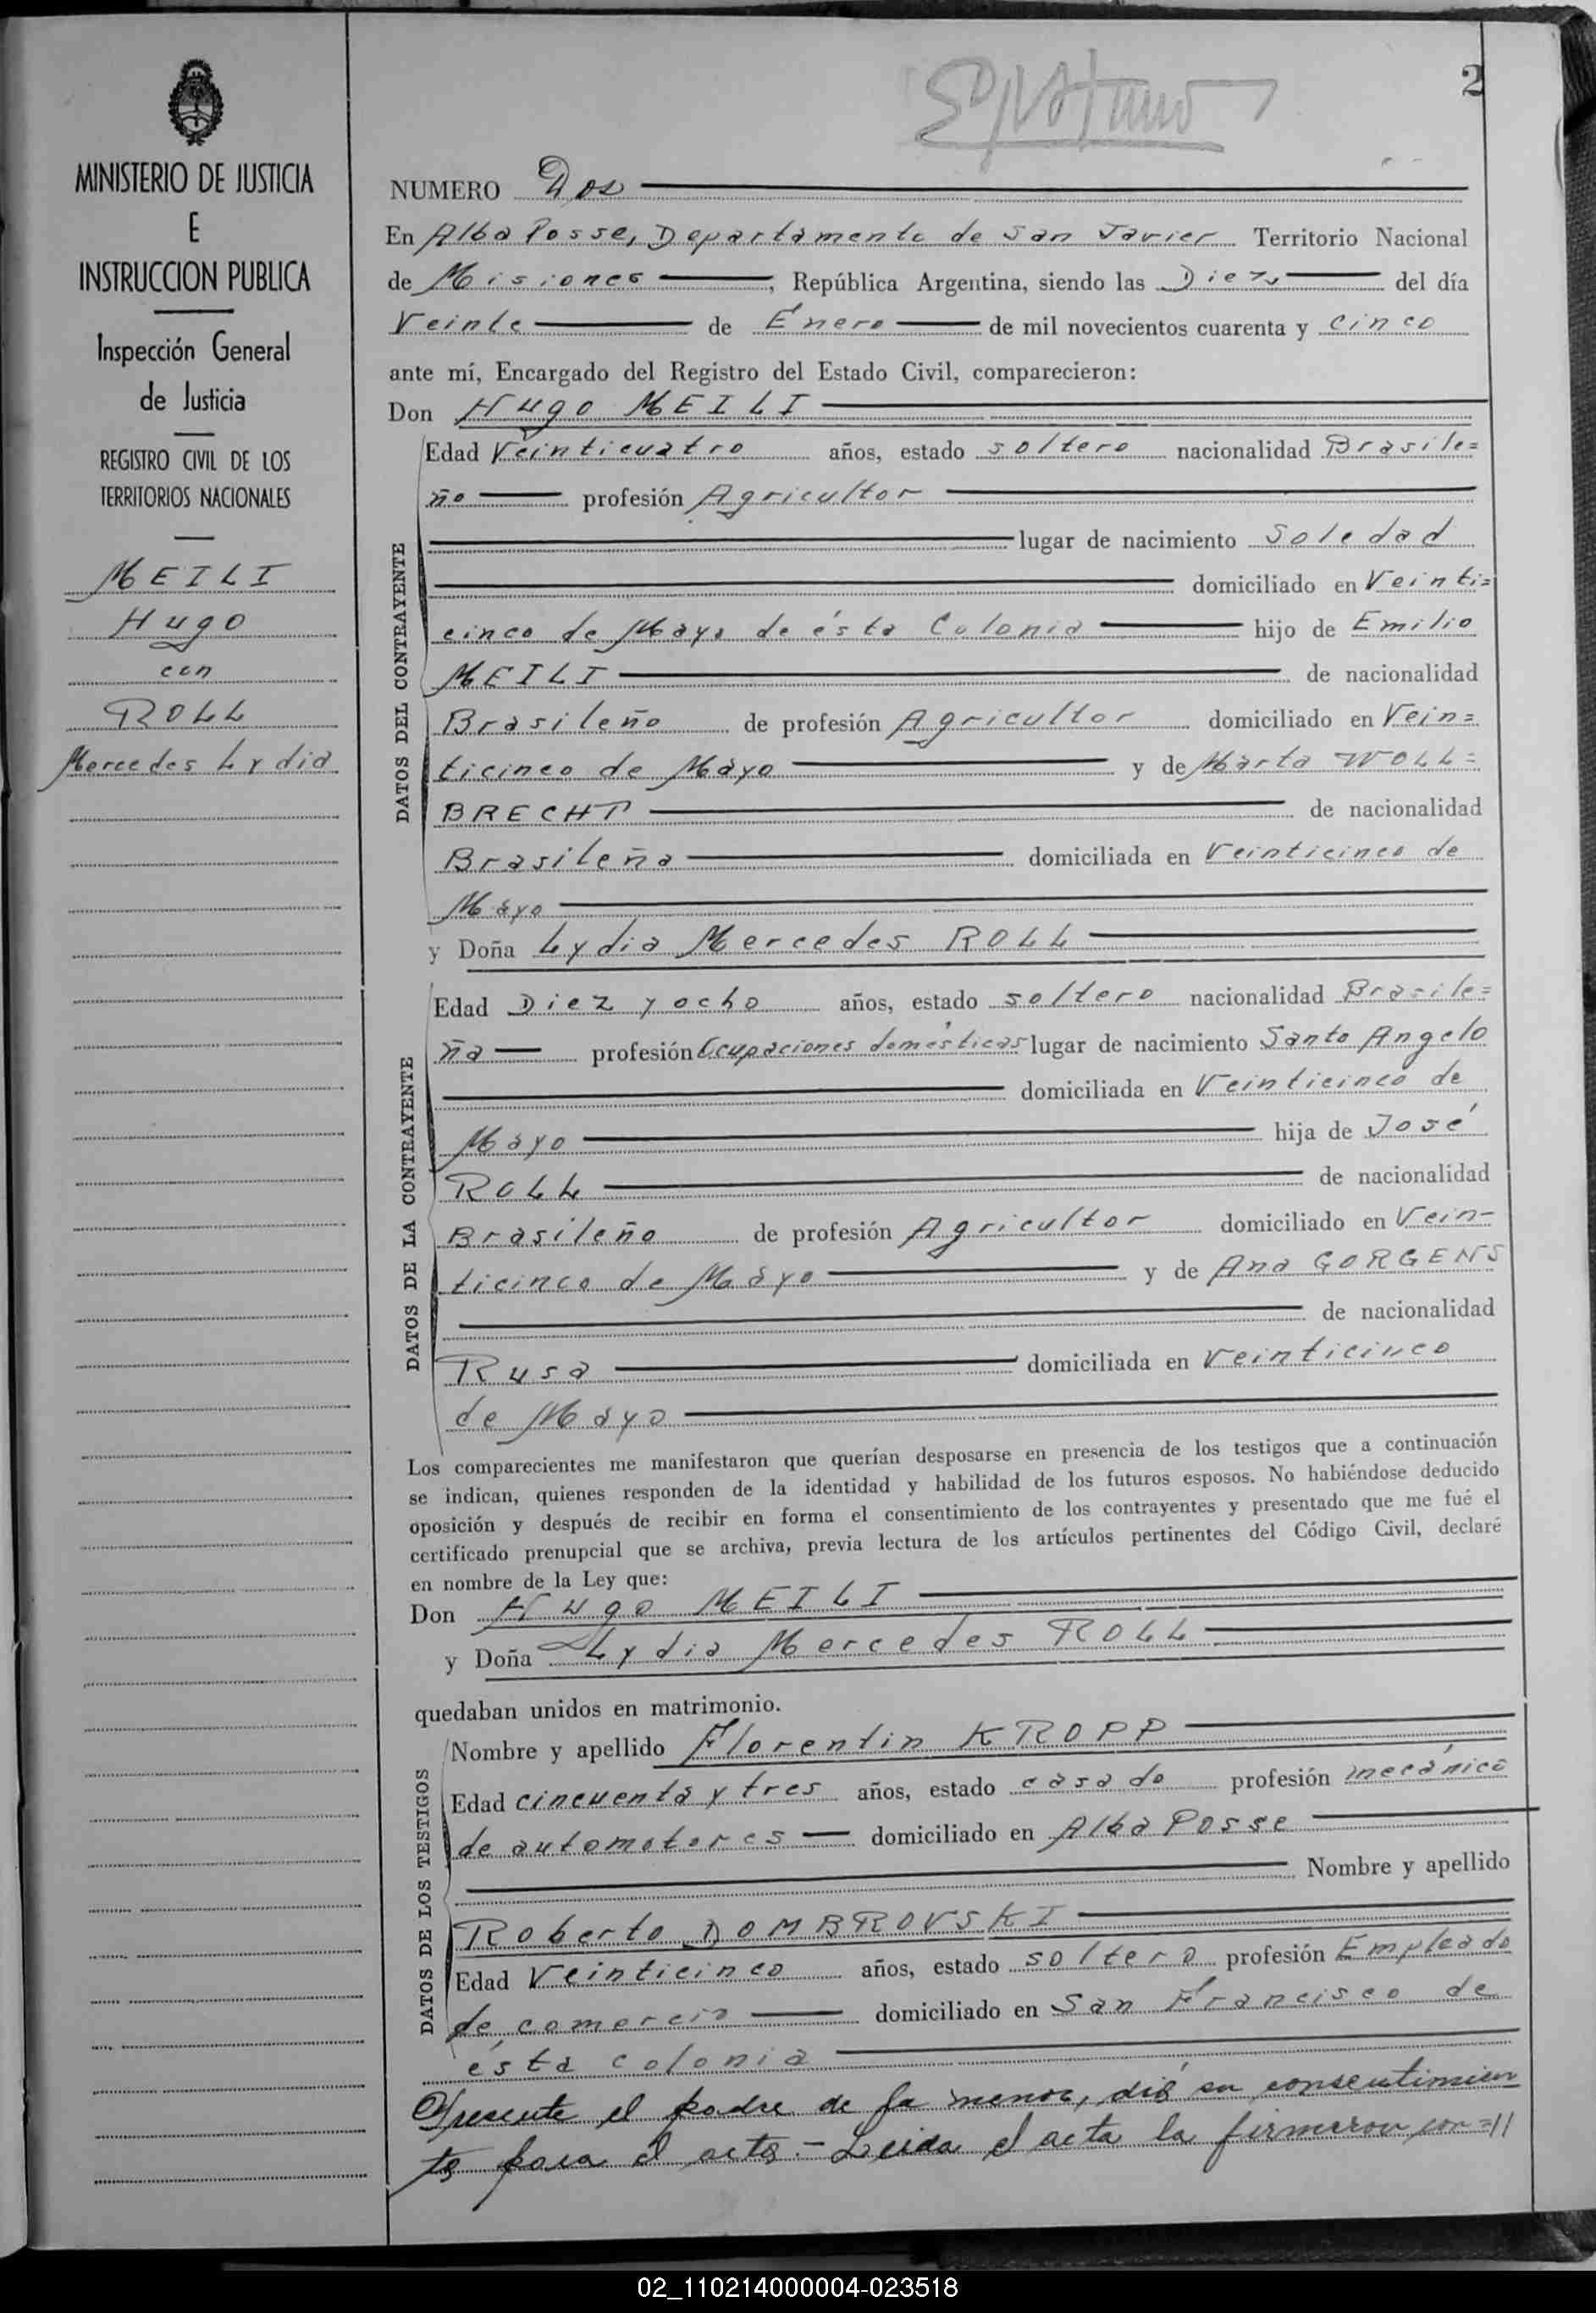 2
MINISTERIO DE JUSTICIA
E
INSTRUCCION PUBLICA
Inspección General
de Justicia
REGISTRO CIVIL DE LOS
TERRITORIOS NACIONALES
MEILI
Hugo
con
ROLL
Mercedes Lydia
NUMERO Dos
En Alba Posse, Departamento de San Javier Territorio Nacional
de Misiones, República Argentina, siendo las Diez del día
Veinte de Enero de mil novecientos cuarenta y cinco
ante mí, Encargado del Registro del Estado Civil, comparecieron:
Don Hugo MEILI
DATOS DEL CONTRAYENTE
Edad Veinticuatro años, estado soltero nacionalidad Brasile=
ño profesión Agricultor
lugar de nacimiento Soledad
domiciliado en Veinti=
cinco de Mayo de ésta Colonia hijo de Emilio
MEILI de nacionalidad
Brasileño de profesión Agricultor domiciliado en Vein=
ticinco de Mayo y de Marta WOLL=
BRECHT de nacionalidad
Brasileña domiciliada en Veinticinco de
Mayo
y Doña Lydia Mercedes ROLL
DATOS DE LA CONTRAYENTE
Edad Diez y ocho años, estado soltero nacionalidad Brasile=
ña profesión Ocupaciones domésticas lugar de nacimiento Santo Angelo
domiciliada en Veinticinco de
Mayo hija de José
ROLL de nacionalidad
Brasileño de profesión Agricultor domiciliado en Vein-
ticinco de Mayo y de Ana GORGENS
de nacionalidad
Rusa domiciliada en Veinticinco
de Mayo
Los comparecientes me manifestaron que querían desposarse en presencia de los testigos que a continuación
se indican, quienes responden de la identidad y habilidad de los futuros esposos. No habiéndose deducido
oposición y después de recibir en forma el consentimiento de los contrayentes y presentado que me fué el
certificado prenupcial que se archiva, previa lectura de los artículos pertinentes del Código Civil, declaré
en nombre de la Ley que:
Don Hugo MEILI
y Doña Lydia Mercedes ROLL
quedaban unidos en matrimonio.
DATOS DE LOS TESTIGOS
Nombre y apellido Florentin KROPP
Edad cincuenta y tres años, estado casado profesión mecánico
de automotores domiciliado en Alba Posse
Nombre y apellido
Roberto DOMBROVSKI
Edad Veinticinco años, estado soltero profesión Empleado
de comercio domiciliado en San Francisco de
ésta colonia
Presente el padre de la menor, dió su consentimien
to para el acto.- Leida el acta la firmaron con =//
02_110214000004-023518